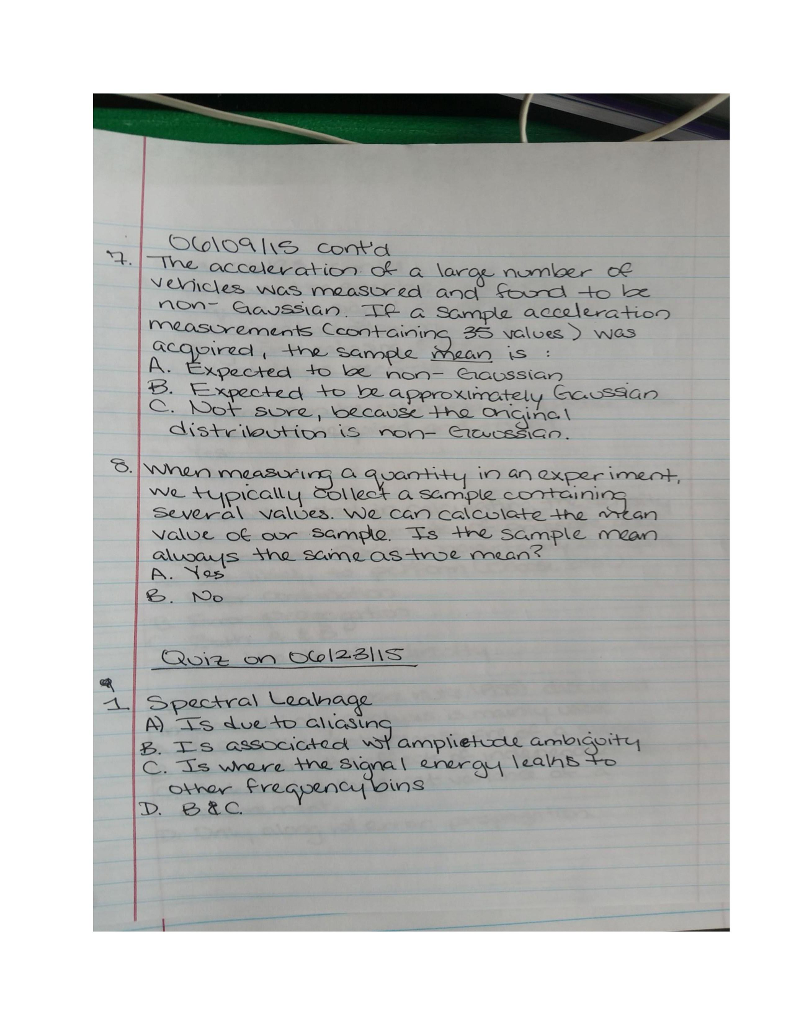 06/09/15 cont'd
7. The acceleration of a large number of
vehicles was measured and found to be
non-Gaussian. If a sample acceleration
measurements (containing 35 values) was
acquired, the sample mean is :
A. Expected to be non-Gaussian
B. Expected to be approximately Gaussian
C. Not sure, because the original
distribution is non-Gaussian.
8. When measuring a quantity in an experiment,
we typically collect a sample containing
several values. We can calculate the mean
value of our sample. Is the sample mean
always the same as true mean?
A. Yes
B. No
Quiz on 06/23/15
1 Spectral Leakage
A) Is due to aliasing
B. Is associated w/ amplietude ambiguity
C. Is where the signal energy leaks to
other frequency bins
D. B & C.